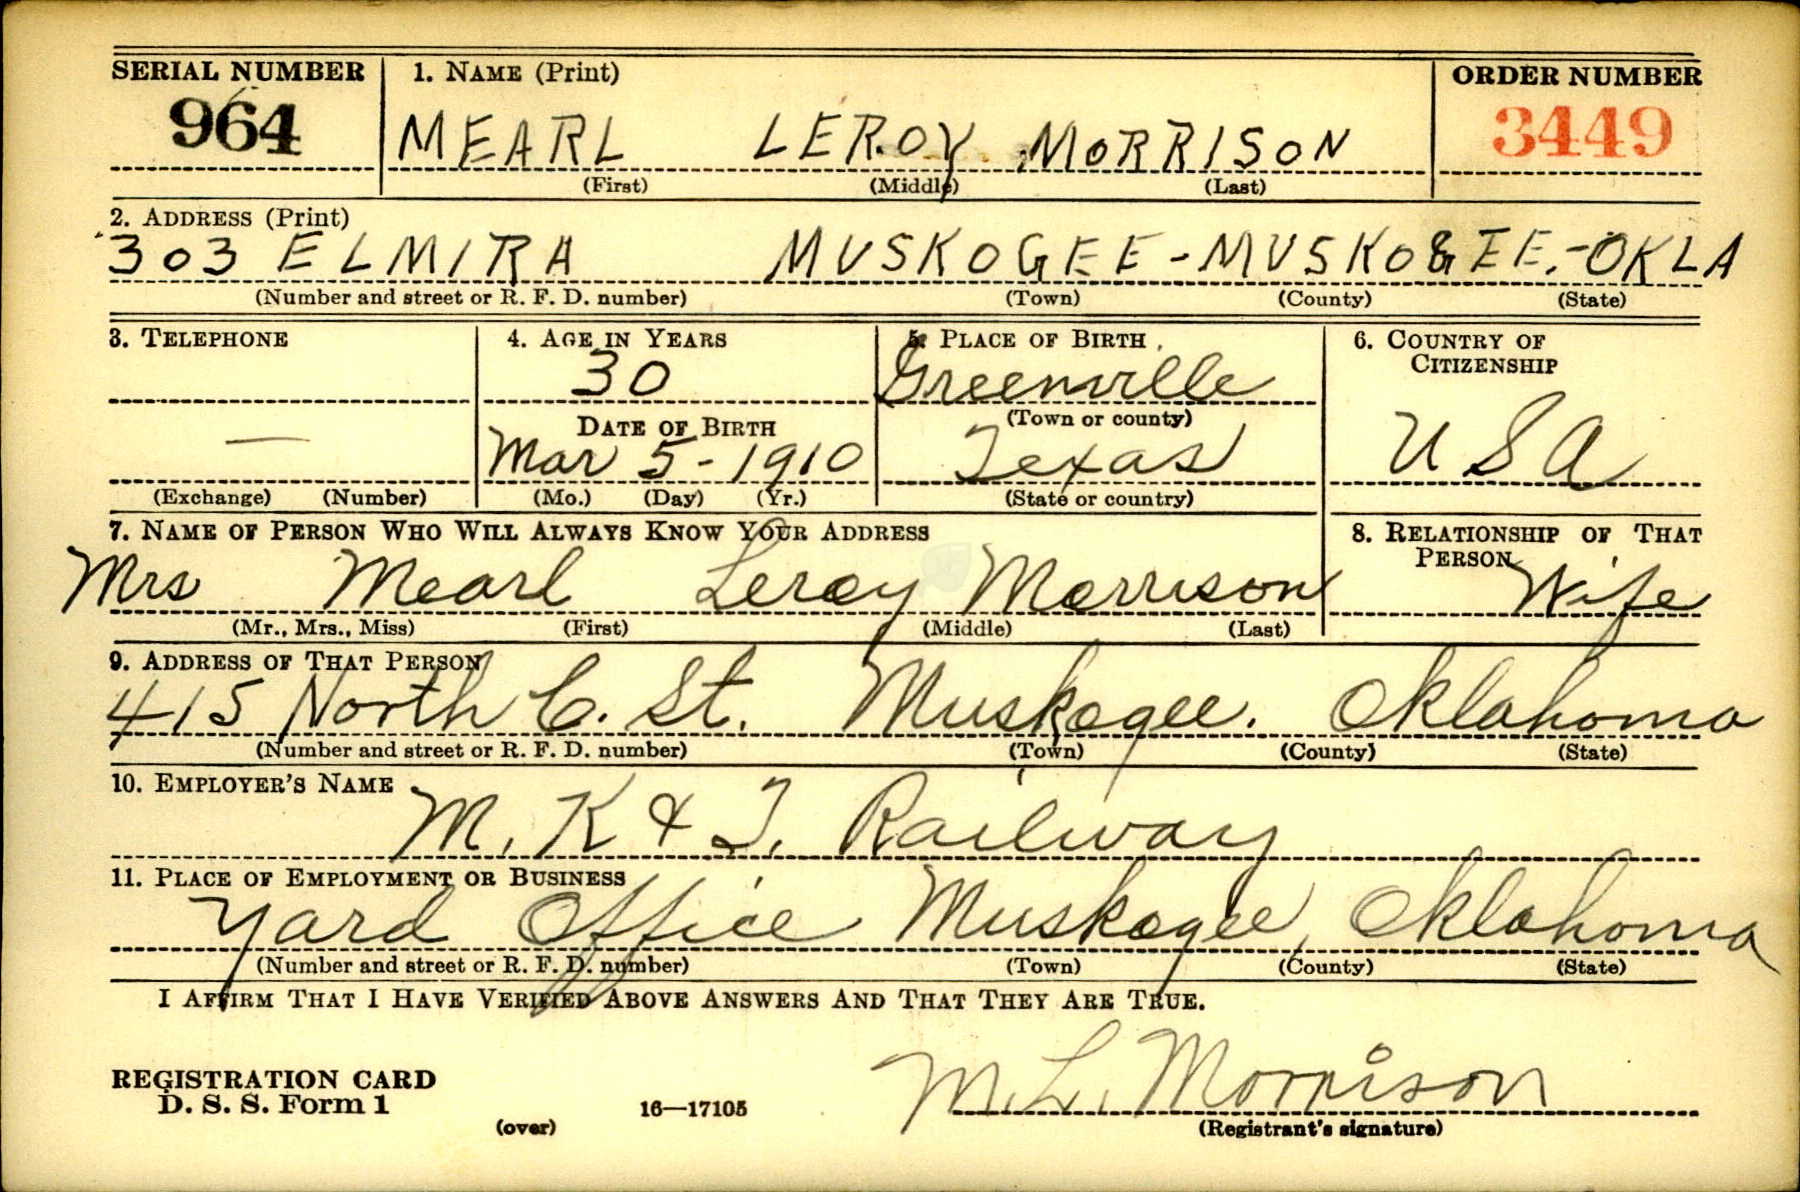 SERIAL NUMBER 1. NAME (Print) ORDER NUMBER
964 MEARL LEROY MORRISON 3449
(First) (Middle) (Last)
2. ADDRESS (Print)
303 ELMIRA MUSKOGEE-MUSKOGEE.-OKLA
(Number and street or R. F. D. number) (Town) (County) (State)
3. TELEPHONE 4. AGE IN YEARS 5. PLACE OF BIRTH 6. COUNTRY OF
CITIZENSHIP
30 Greenville
DATE OF BIRTH (Town or county)
— Mar 5-1910 Texas USA
(Exchange) (Number) (Mo.) (Day) (Yr.) (State or country)
7. NAME OF PERSON WHO WILL ALWAYS KNOW YOUR ADDRESS 8. RELATIONSHIP OF THAT
PERSON
Mrs Mearl Leroy Morrison Wife
(Mr., Mrs., Miss) (First) (Middle) (Last)
9. ADDRESS OF THAT PERSON
415 North C. St. Muskogee. Oklahoma
(Number and street or R. F. D. number) (Town) (County) (State)
10. EMPLOYER'S NAME
M. K & T. Railway
11. PLACE OF EMPLOYMENT OR BUSINESS
Yard Office Muskogee, Oklahoma
(Number and street or R. F. D. number) (Town) (County) (State)
I AFFIRM THAT I HAVE VERIFIED ABOVE ANSWERS AND THAT THEY ARE TRUE.
REGISTRATION CARD M. L. Morrison
D. S. S. Form 1 16—17105
(over) (Registrant's signature)